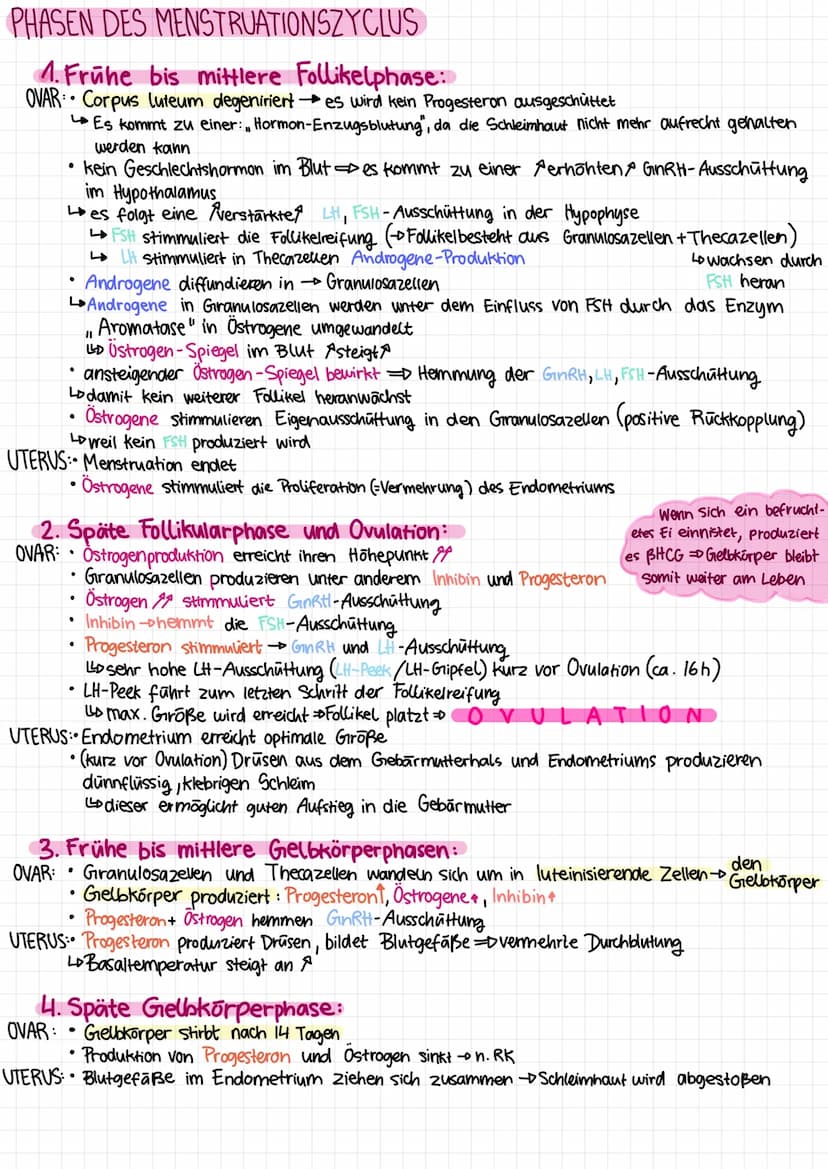 PHASEN DES MENSTRUATIONSZYCLUS
1. Frühe bis mittlere Follikelphase:
OVAR: • Corpus luteum degeniriert → es wird kein Progesteron ausgeschüttet
↳ Es kommt zu einer: „Hormon-Enzugsblutung", da die Schleimhaut nicht mehr aufrecht gehalten
werden kann
• kein Geschlechtshormon im Blut ⇒ es kommt zu einer ↗erhöhten↗ GnRH-Ausschüttung
im Hypothalamus
↳ es folgt eine ↗verstärkte↗ LH, FSH-Ausschüttung in der Hypophyse
↳ FSH stimmuliert die Follikelreifung (→ Follikel besteht aus Granulosazellen + Thecazellen)
↳ LH stimmuliert in Thecazellen Androgene-Produktion ↳ wachsen durch
FSH heran
• Androgene diffundieren in → Granulosazellen
↳ Androgene in Granulosazellen werden unter dem Einfluss von FSH durch das Enzym
„Aromatase" in Östrogene umgewandelt
↳ Östrogen-Spiegel im Blut ↗steigt↗
• ansteigender Östrogen-Spiegel bewirkt ⇒ Hemmung der GnRH, LH, FSH-Ausschüttung
↳ damit kein weiterer Follikel heranwächst
• Östrogene stimmulieren Eigenausschüttung in den Granulosazellen (positive Rückkopplung)
↳ weil kein FSH produziert wird
UTERUS: • Menstruation endet
• Östrogene stimmuliert die Proliferation (=Vermehrung) des Endometriums
Wenn sich ein befrucht-
etes Ei einnistet, produziert
es βHCG ⇒ Gelbkörper bleibt
somit weiter am Leben
2. Späte Follikularphase und Ovulation:
OVAR: • Östrogenproduktion erreicht ihren Höhepunkt ↗↗
• Granulosazellen produzieren unter anderem Inhibin und Progesteron
• Östrogen ↗↗ stimmuliert GnRH-Ausschüttung
• Inhibin → hemmt die FSH-Ausschüttung
• Progesteron stimmuliert → GnRH und LH-Ausschüttung
↳ sehr hohe LH-Ausschüttung (LH-Peek/LH-Gipfel) kurz vor Ovulation (ca. 16h)
• LH-Peek führt zum letzten Schritt der Follikelreifung
↳ max. Größe wird erreicht ⇒ Follikel platzt ⇒ OVULATION
UTERUS: • Endometrium erreicht optimale Größe
• (kurz vor Ovulation) Drüsen aus dem Gebärmutterhals und Endometriums produzieren
dünnflüssig, klebrigen Schleim
↳ dieser ermöglicht guten Aufstieg in die Gebärmutter
3. Frühe bis mittlere Gelbkörperphasen:
OVAR: • Granulosazellen und Thecazellen wandeln sich um in luteinisierende Zellen → den
Gelbkörper
• Gelbkörper produziert: Progesteron↑, Östrogene↑, Inhibin↑
• Progesteron + Östrogen hemmen GnRH-Ausschüttung
UTERUS: • Progesteron produziert Drüsen, bildet Blutgefäße ⇒ vermehrte Durchblutung
↳ Basaltemperatur steigt an ↗
4. Späte Gelbkörperphase:
OVAR: • Gelbkörper stirbt nach 14 Tagen
• Produktion von Progesteron und Östrogen sinkt → n. RK
UTERUS: • Blutgefäße im Endometrium ziehen sich zusammen → Schleimhaut wird abgestoßen